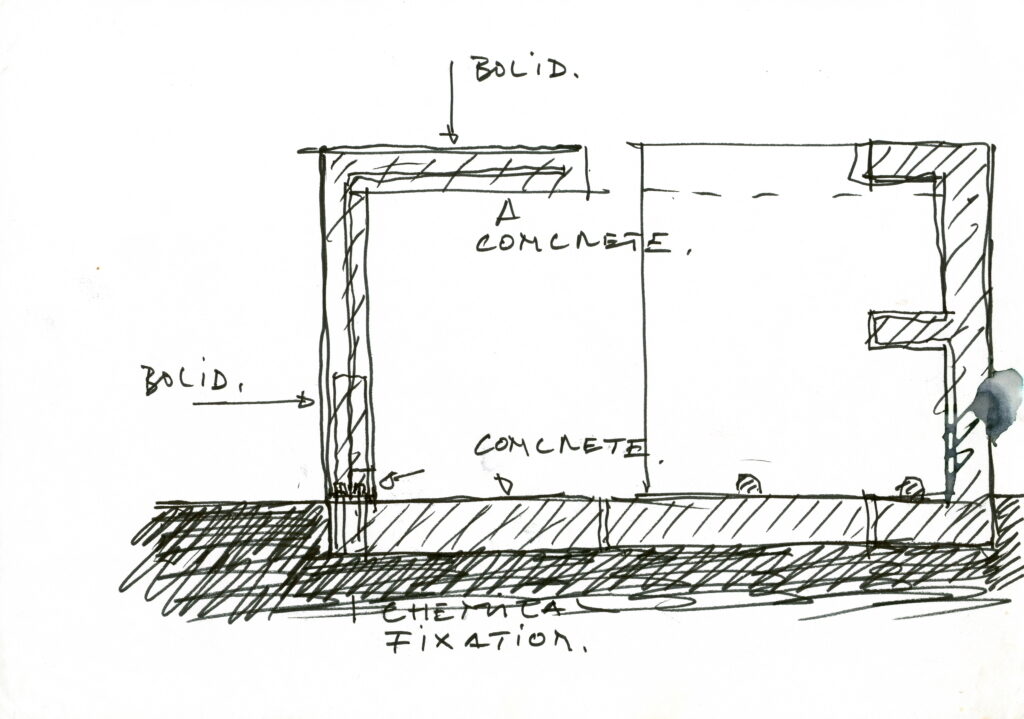 BOLID.
COMCRETE.
BOLID.
COMCRETE.
CHEMICAL
FIXATION.